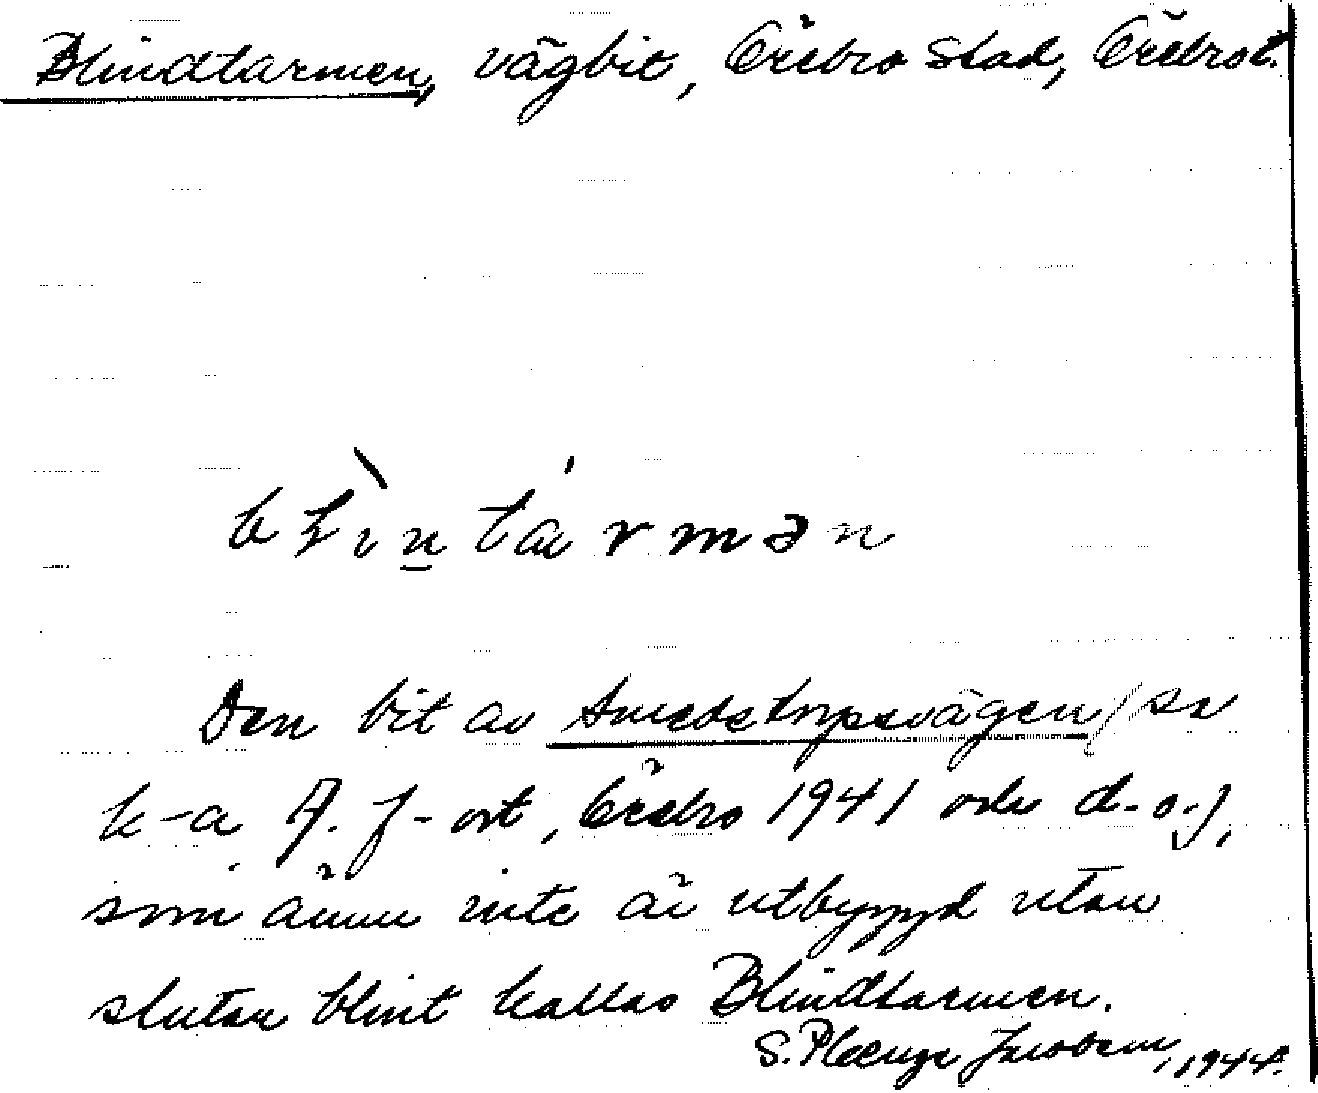 Blindtarmen, vägbit, Örebro stad, Örebro l.
blìntármən
Den bit av Smedstorpsvägen (se
k-a f-ort, Örebro 1941 och d. o.),
som ännu inte är utbyggd utan
slutar blint kallas Blindtarmen.
S. Plenge Jacobsen, 1944.